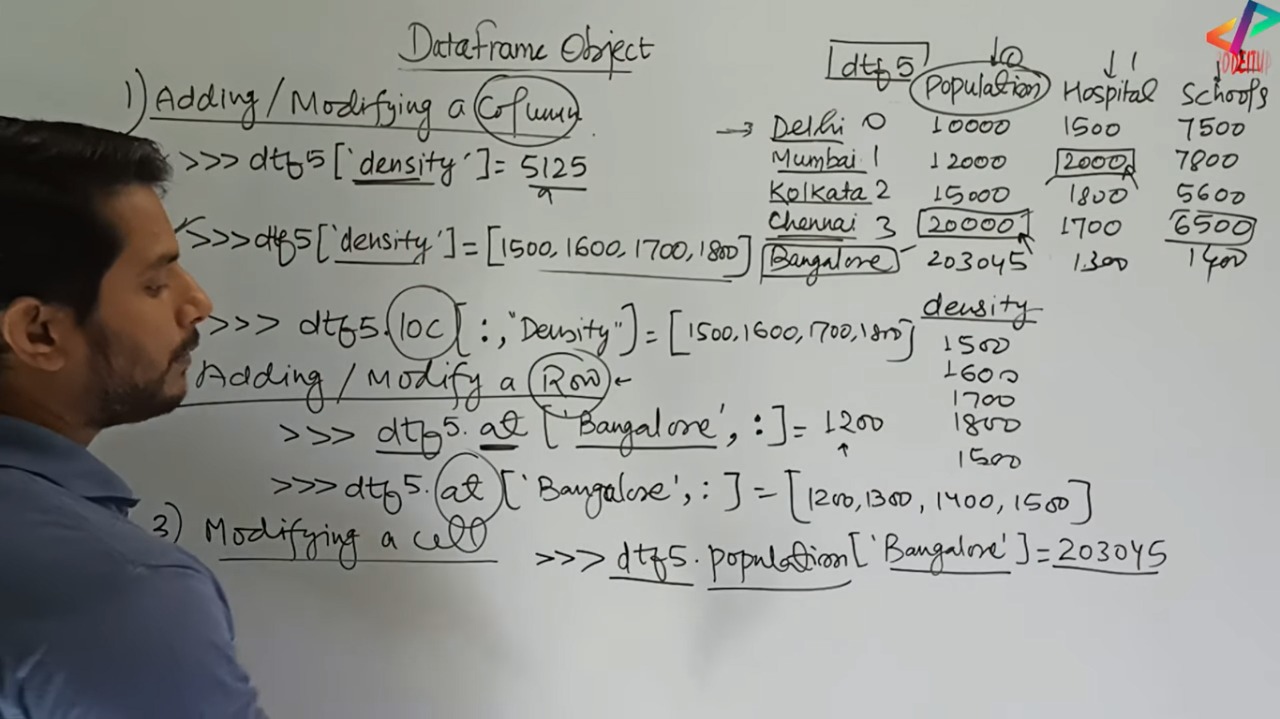 Dataframe Object
1) Adding/Modifying a Column.
>>> dtf5['density'] = 5125
>>> dtf5['density'] = [1500, 1600, 1700, 1800]
>>> dtf5.loc[:,"Density"] = [1500, 1600, 1700, 1800]
Adding/Modify a Row
>>> dtf5.at['Bangalore', :] = 1200
>>> dtf5.at['Bangalose', :] = [1200, 1300, 1400, 1500]
3) Modifying a cell
>>> dtf5.population['Bangalore'] = 203045
dtf5
0 1
Population Hospital Schools
Delhi 0 10000 1500 7500
Mumbai 1 12000 2000 7800
Kolkata 2 15000 1800 5600
Chennai 3 20000 1700 6500
Bangalore 203045 1300 1400
density
1500
1600
1700
1800
1500